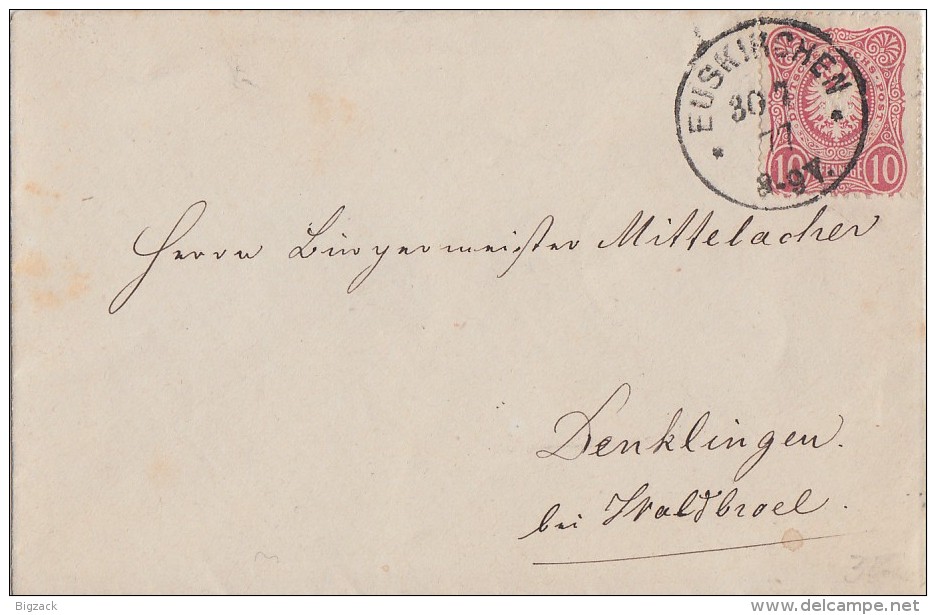 EUSKIRCHEN
30 7
77
8-9V.
10 PFENNIGE 10
Herrn Bürgermeister Mittelacher
Denklingen.
bei Waldbroel.
Bigzack
www.delcampe.net